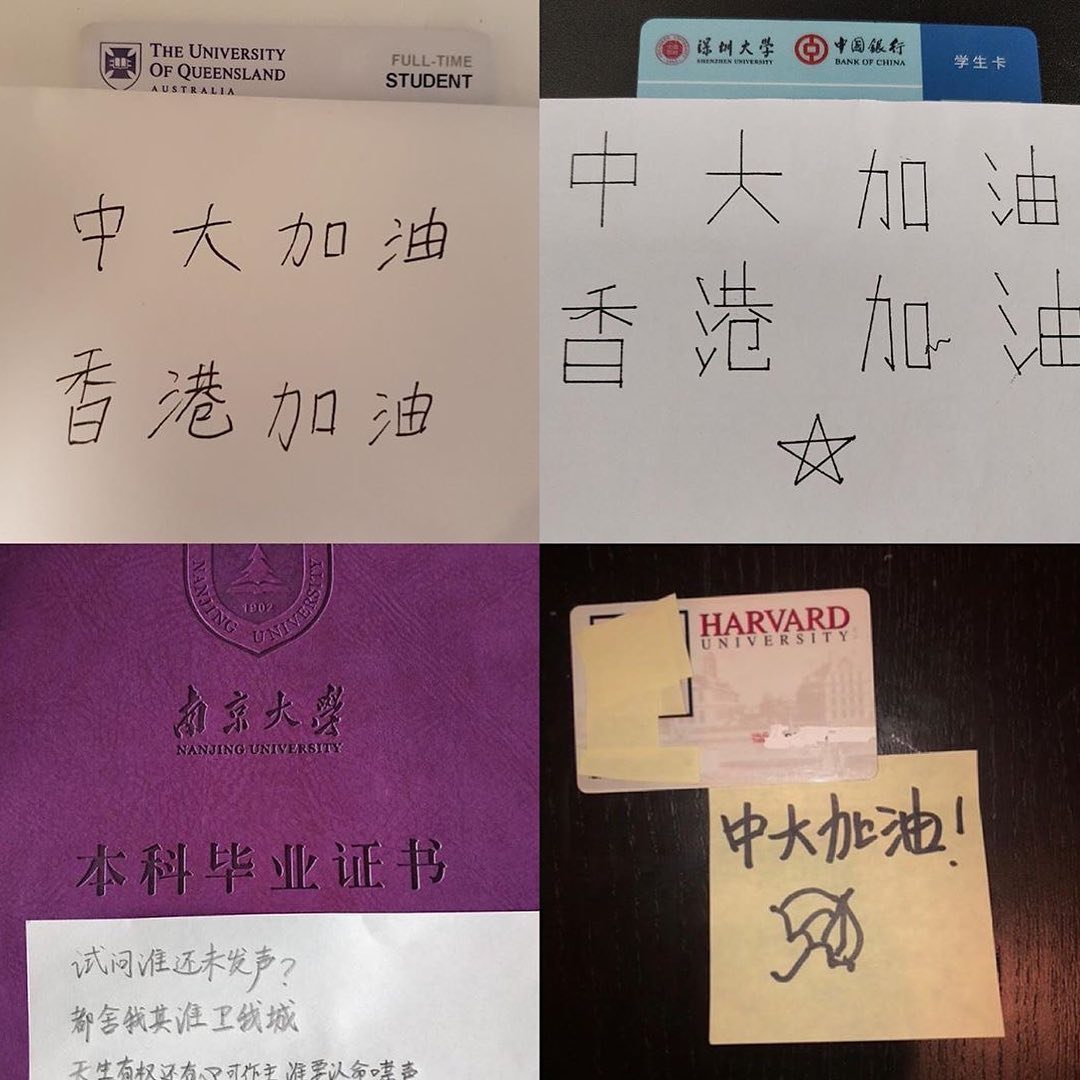 THE UNIVERSITY
OF QUEENSLAND
AUSTRALIA
FULL-TIME
STUDENT
中大加油
香港加油
深圳大学
SHENZHEN UNIVERSITY
中国银行
BANK OF CHINA
学生卡
中大加油
香港加油
NANJING UNIVERSITY
1902
南京大學
NANJING UNIVERSITY
本科毕业证书
试问谁还未发声?
都舍我其谁卫我城
天生有权还有心可作主谁要认命噤声
HARVARD
UNIVERSITY
中大加油!